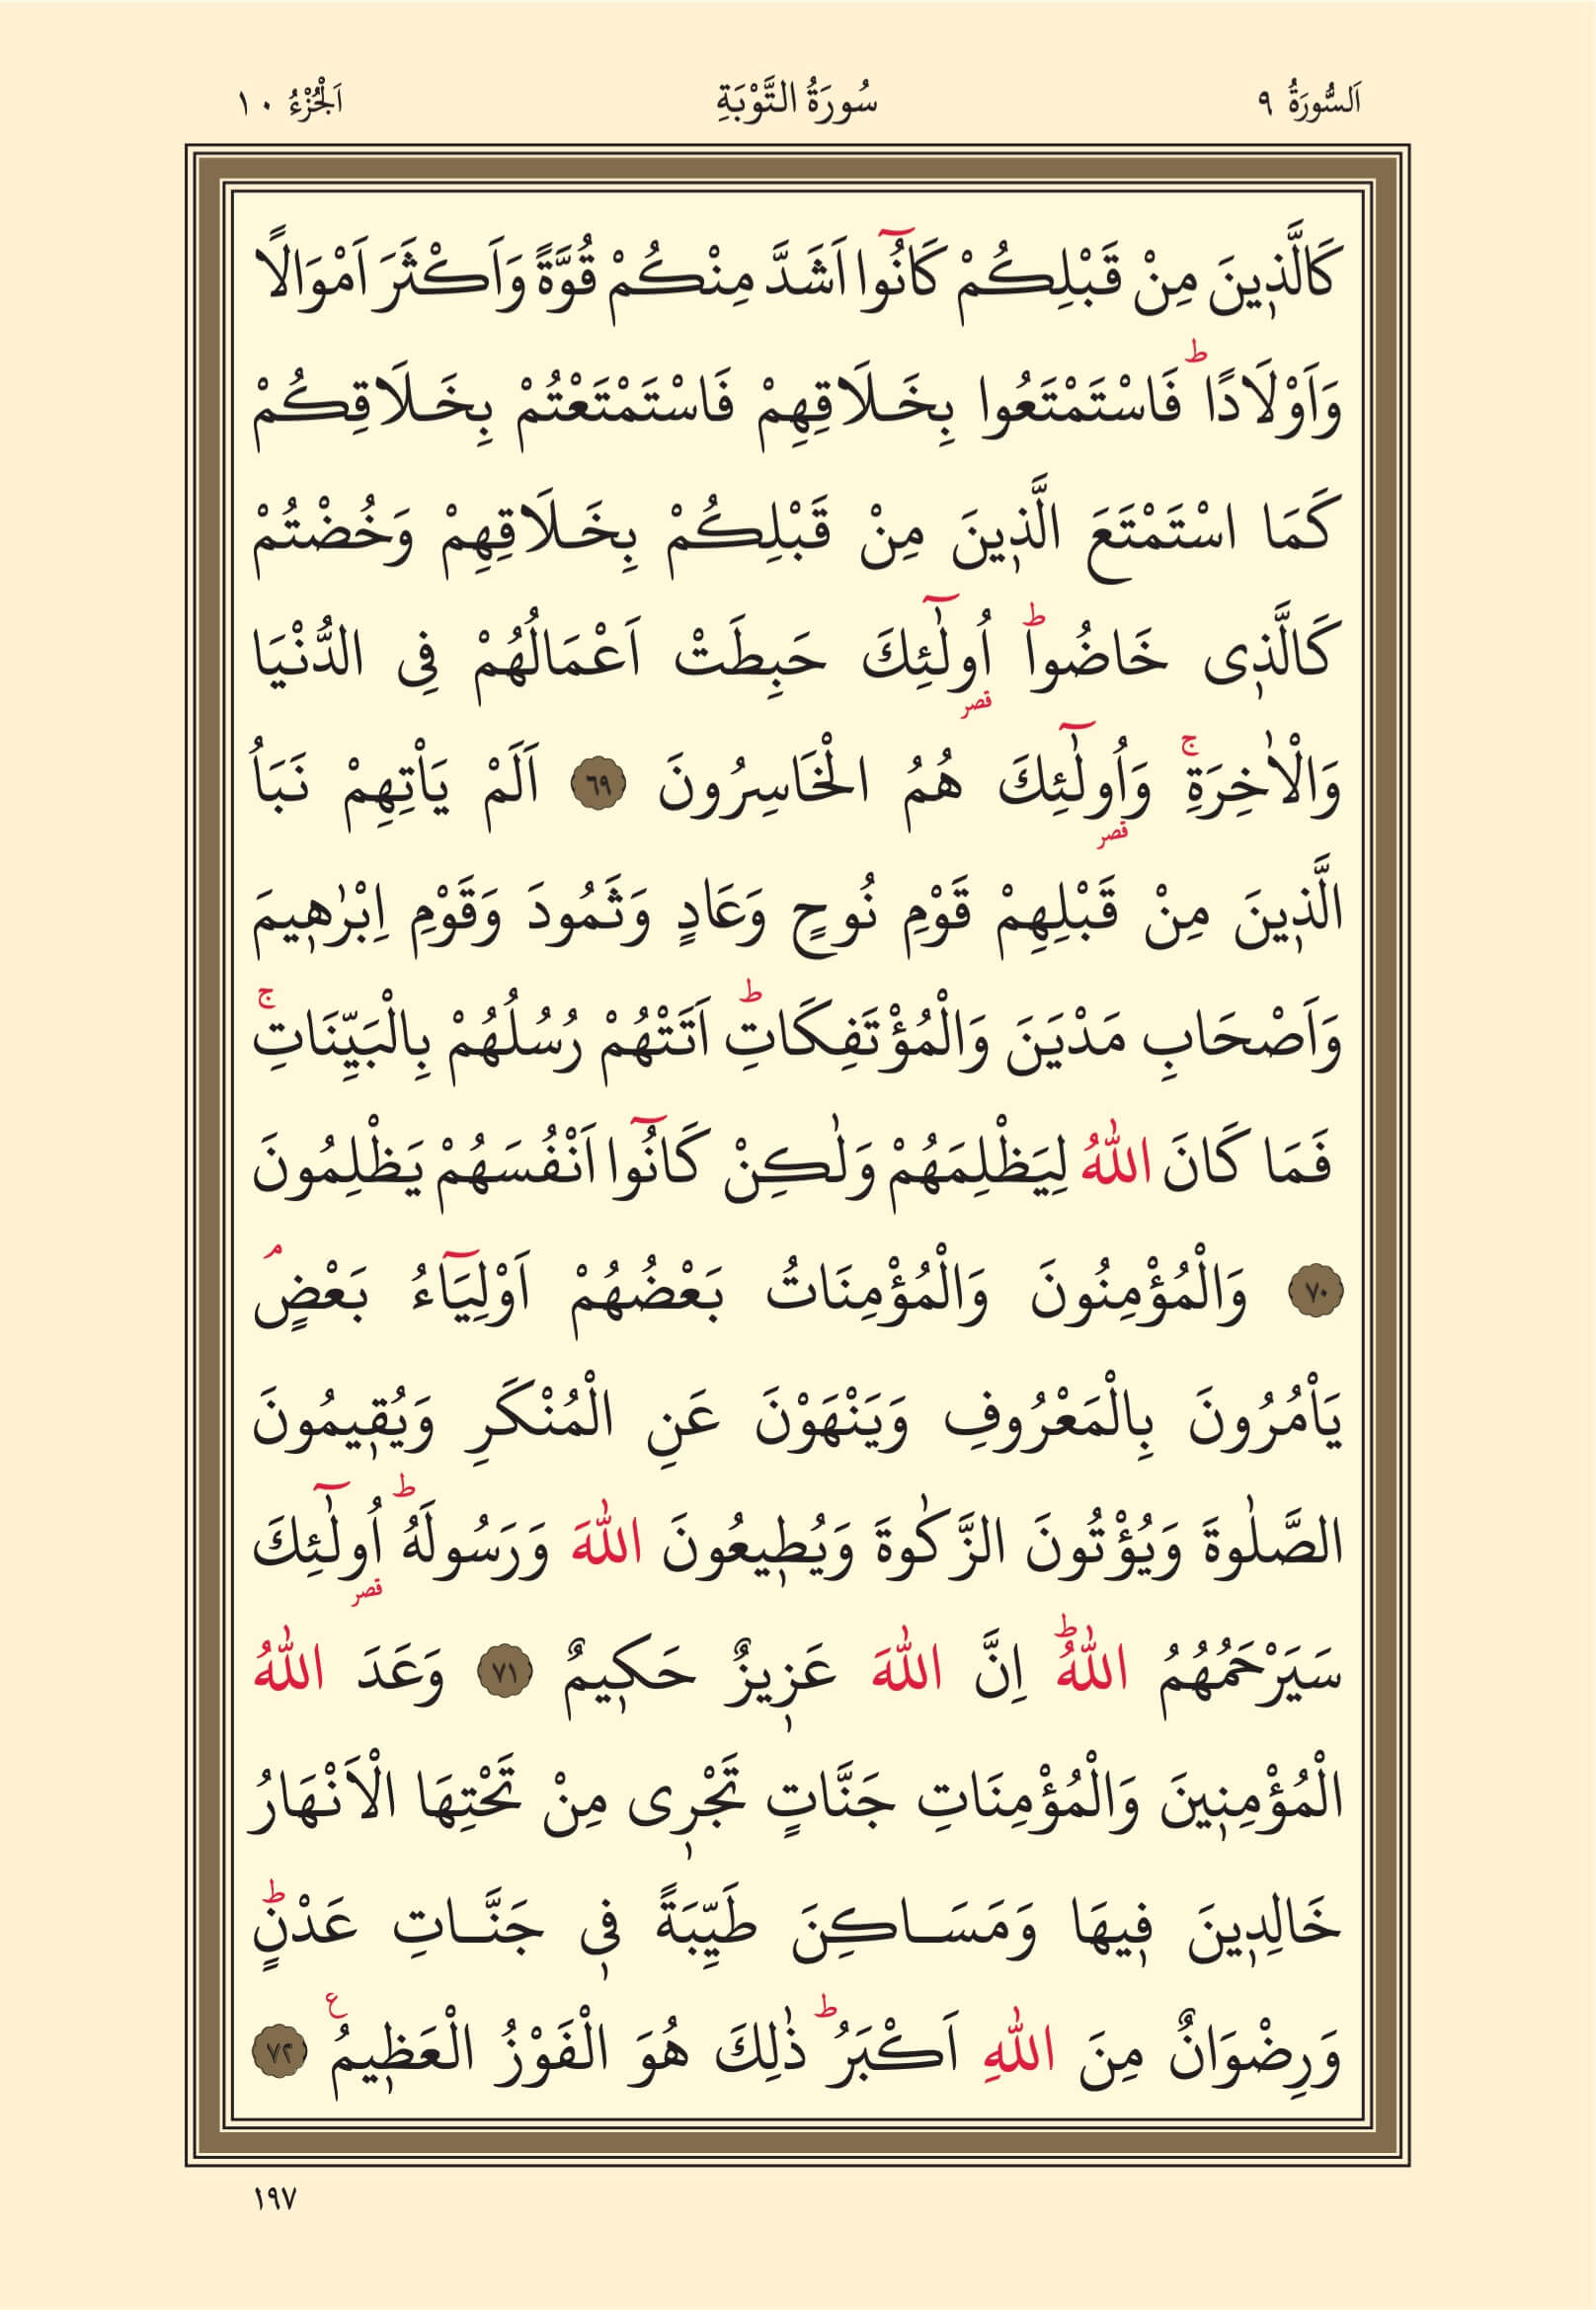 اَلسُّورَةُ ٩ سُورَةُ التَّوْبَةِ اَلْجُزْءُ ١٠
كَالَّذ۪ينَ مِنْ قَبْلِكُمْ كَانُٓوا اَشَدَّ مِنْكُمْ قُوَّةً وَاَكْثَرَ اَمْوَالًا
وَاَوْلَادًاۜ فَاسْتَمْتَعُوا بِخَلَاقِهِمْ فَاسْتَمْتَعْتُمْ بِخَلَاقِكُمْ
كَمَا اسْتَمْتَعَ الَّذ۪ينَ مِنْ قَبْلِكُمْ بِخَلَاقِهِمْ وَخُضْتُمْ
كَالَّذ۪ي خَاضُواۜ اُو۬لٰٓئِكَ حَبِطَتْ اَعْمَالُهُمْ فِي الدُّنْيَا
وَالْاٰخِرَةِۚ وَاُو۬لٰٓئِكَ هُمُ الْخَاسِرُونَ ٦٩ اَلَمْ يَأْتِهِمْ نَبَأُ
الَّذ۪ينَ مِنْ قَبْلِهِمْ قَوْمِ نُوحٍ وَعَادٍ وَثَمُودَ وَقَوْمِ اِبْرٰه۪يمَ
وَاَصْحَابِ مَدْيَنَ وَالْمُؤْتَفِكَاتِۜ اَتَتْهُمْ رُسُلُهُمْ بِالْبَيِّنَاتِۚ
فَمَا كَانَ اللّٰهُ لِيَظْلِمَهُمْ وَلٰكِنْ كَانُٓوا اَنْفُسَهُمْ يَظْلِمُونَ
٧٠ وَالْمُؤْمِنُونَ وَالْمُؤْمِنَاتُ بَعْضُهُمْ اَوْلِيَٓاءُ بَعْضٍۢ
يَأْمُرُونَ بِالْمَعْرُوفِ وَيَنْهَوْنَ عَنِ الْمُنْكَرِ وَيُق۪يمُونَ
الصَّلٰوةَ وَيُؤْتُونَ الزَّكٰوةَ وَيُط۪يعُونَ اللّٰهَ وَرَسُولَهُۜ اُو۬لٰٓئِكَ
سَيَرْحَمُهُمُ اللّٰهُۜ اِنَّ اللّٰهَ عَز۪يزٌ حَك۪يمٌ ٧١ وَعَدَ اللّٰهُ
الْمُؤْمِن۪ينَ وَالْمُؤْمِنَاتِ جَنَّاتٍ تَجْر۪ي مِنْ تَحْتِهَا الْاَنْهَارُ
خَالِد۪ينَ ف۪يهَا وَمَسَاكِنَ طَيِّبَةً ف۪ي جَنَّاتِ عَدْنٍۜ
وَرِضْوَانٌ مِنَ اللّٰهِ اَكْبَرُۜ ذٰلِكَ هُوَ الْفَوْزُ الْعَظ۪يمُ۟ ٧٢
١٩٧